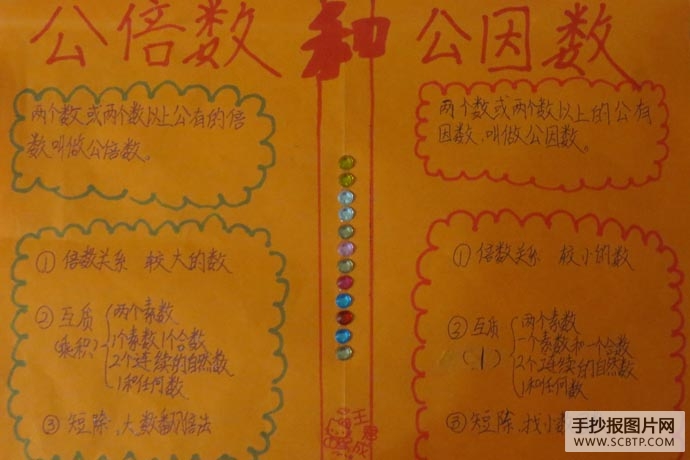 公倍数 和 公因数
两个数或两个数以上公有的倍
数叫做公倍数。
两个数或两个数以上的公有
因数,叫做公因数。
① 倍数关系 较大的数
② 互质
(乘积)
两个素数
1个素数1个合数
2个连续的自然数
1和任何数
③ 短除,大数翻倍法
① 倍数关系 较小的数
② 互质
(1)
两个素数
一个素数和一个合数
2个连续的自然数
1和任何数
③ 短除,找小
王
手抄报图片网
WWW.SCBTP.COM